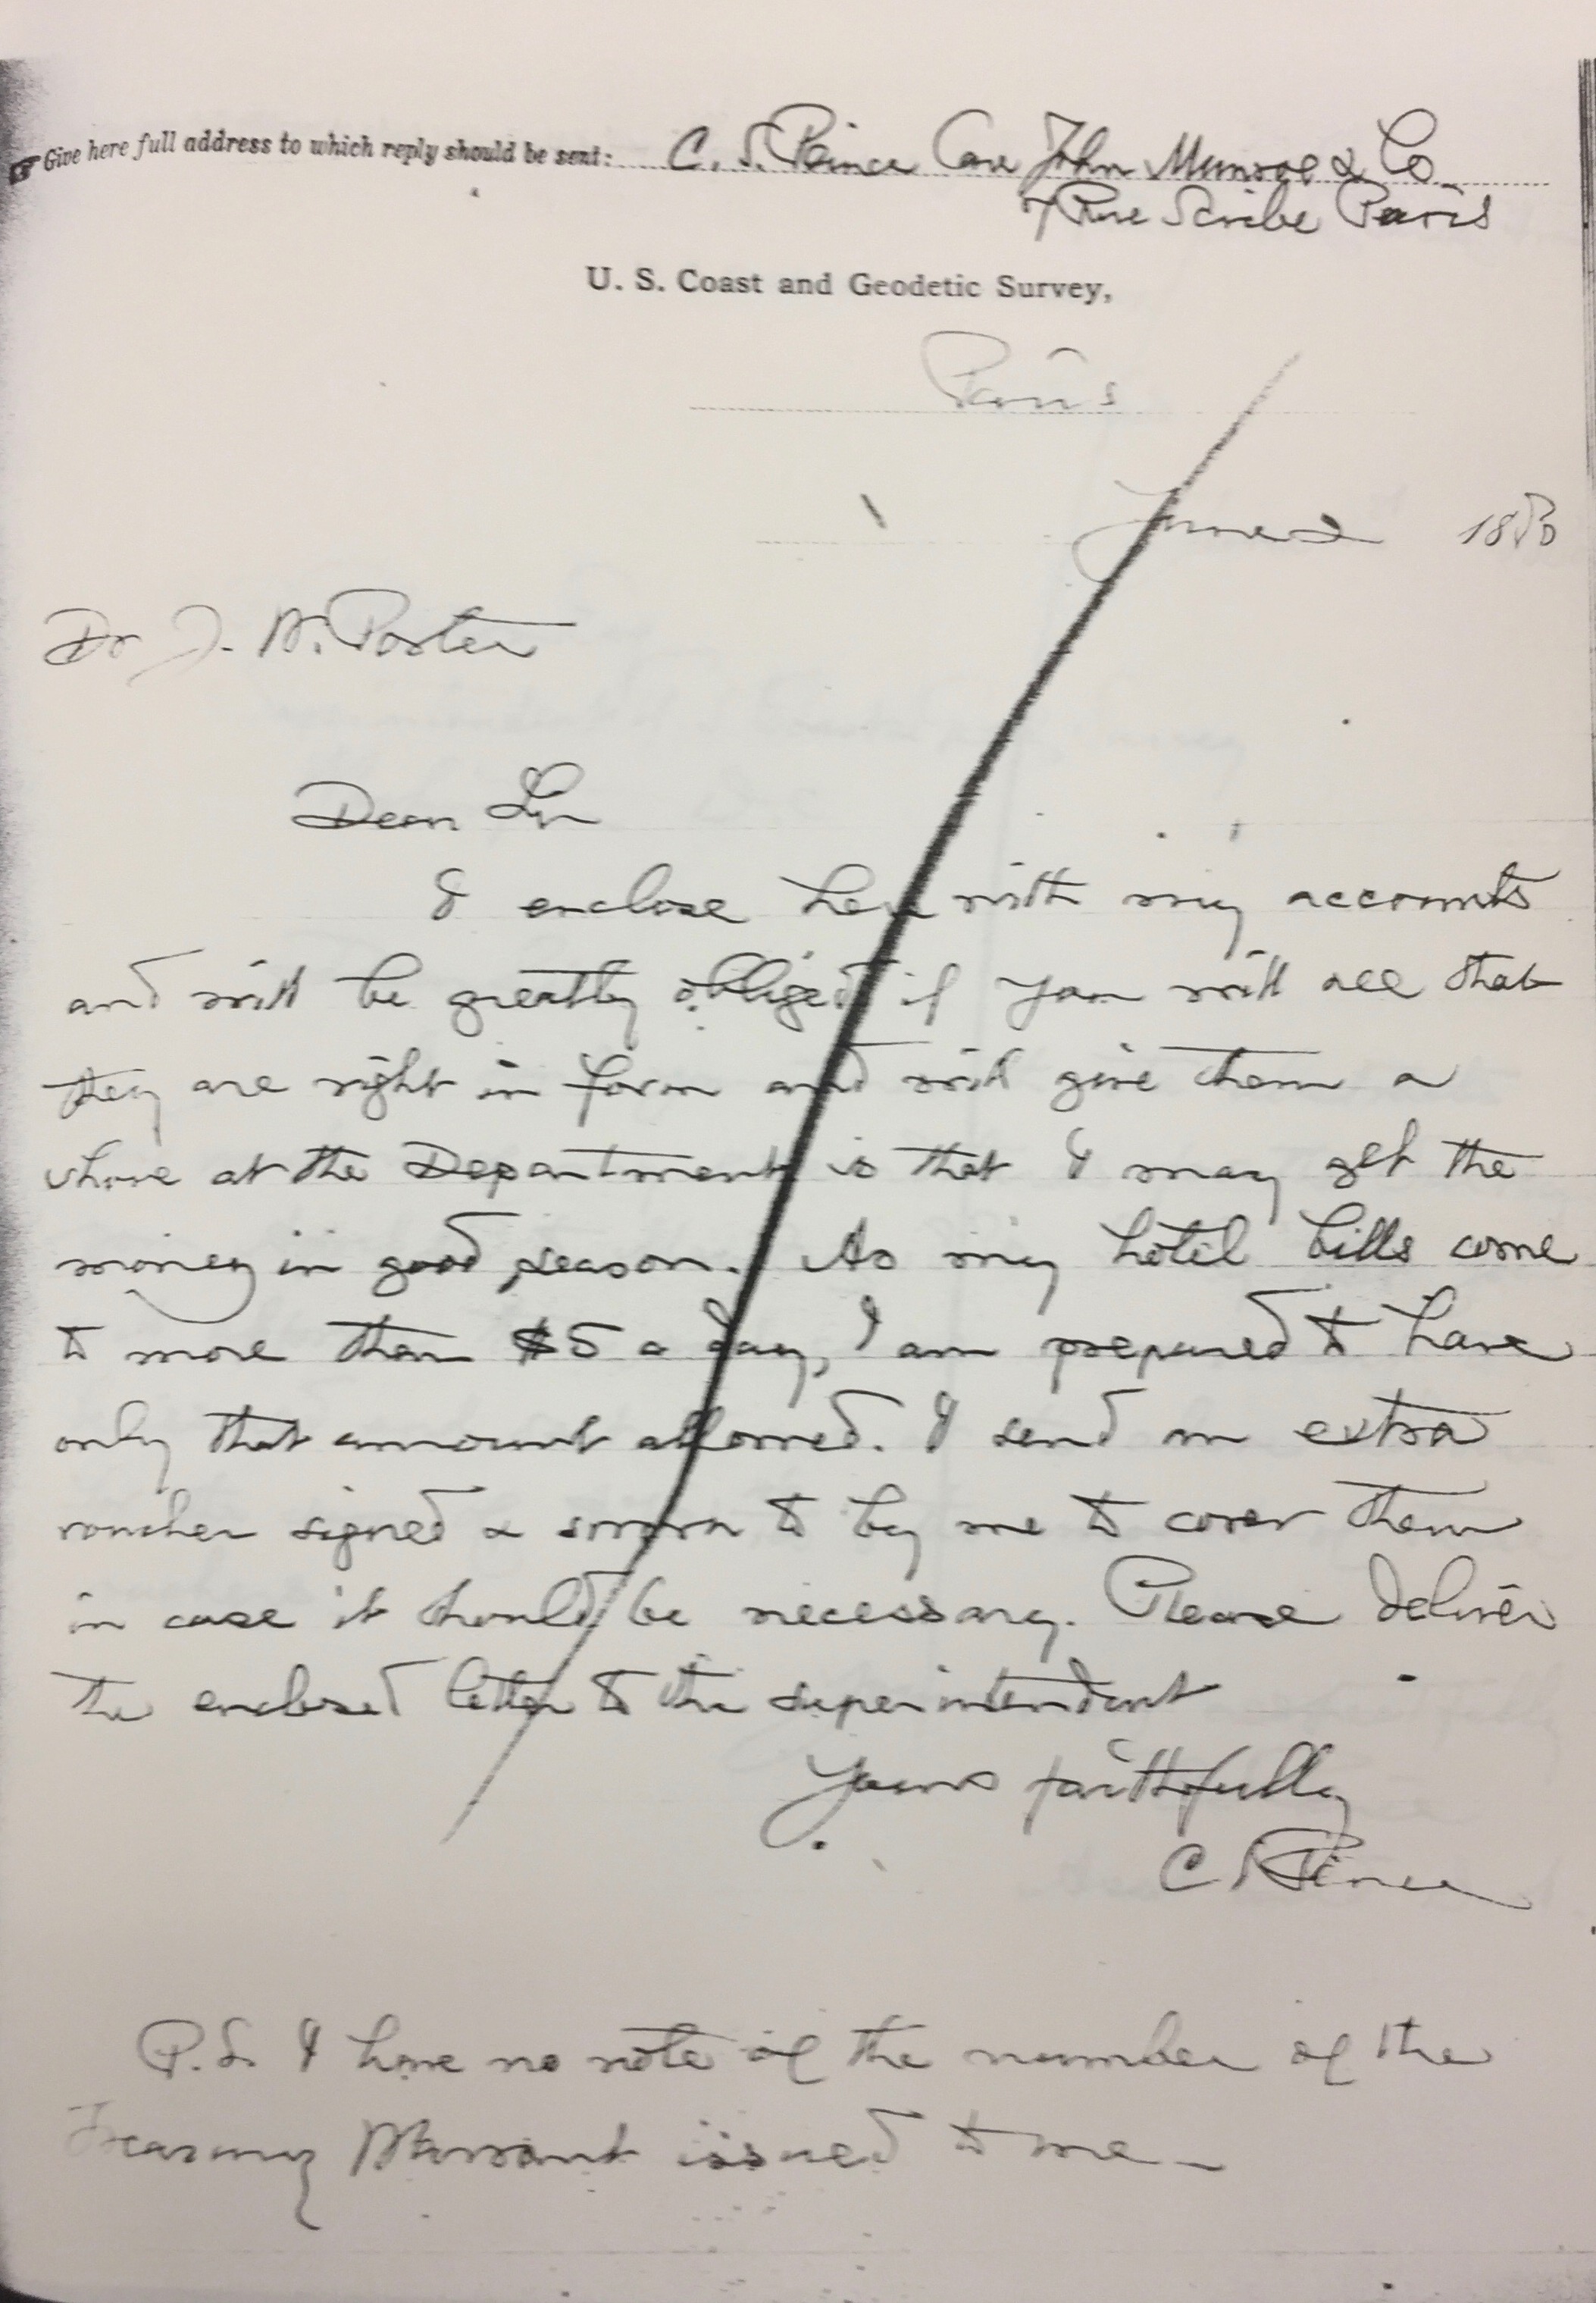 Give here full address to which reply should be sent: C. S. Peirce Care John Munroe & Co
7 Rue Scribe Paris
U. S. Coast and Geodetic Survey,
Paris
June 2 1880
Dr J. W. Porter
Dear Sir
I enclose herewith my accounts
and will be greatly obliged if you will see that
they are right in form and will give them a
shove at the Department so that I may get the
money in good season. As my hotel bills come
to more than $5 a day, I am prepared to have
only that amount allowed. I send an extra
voucher signed & sworn to by me to cover them
in case it should be necessary. Please deliver
the enclosed letter to the superintendent
Yours faithfully
C. S. Peirce
P.S. I have no note of the number of the
Treasury Warrant issued to me_